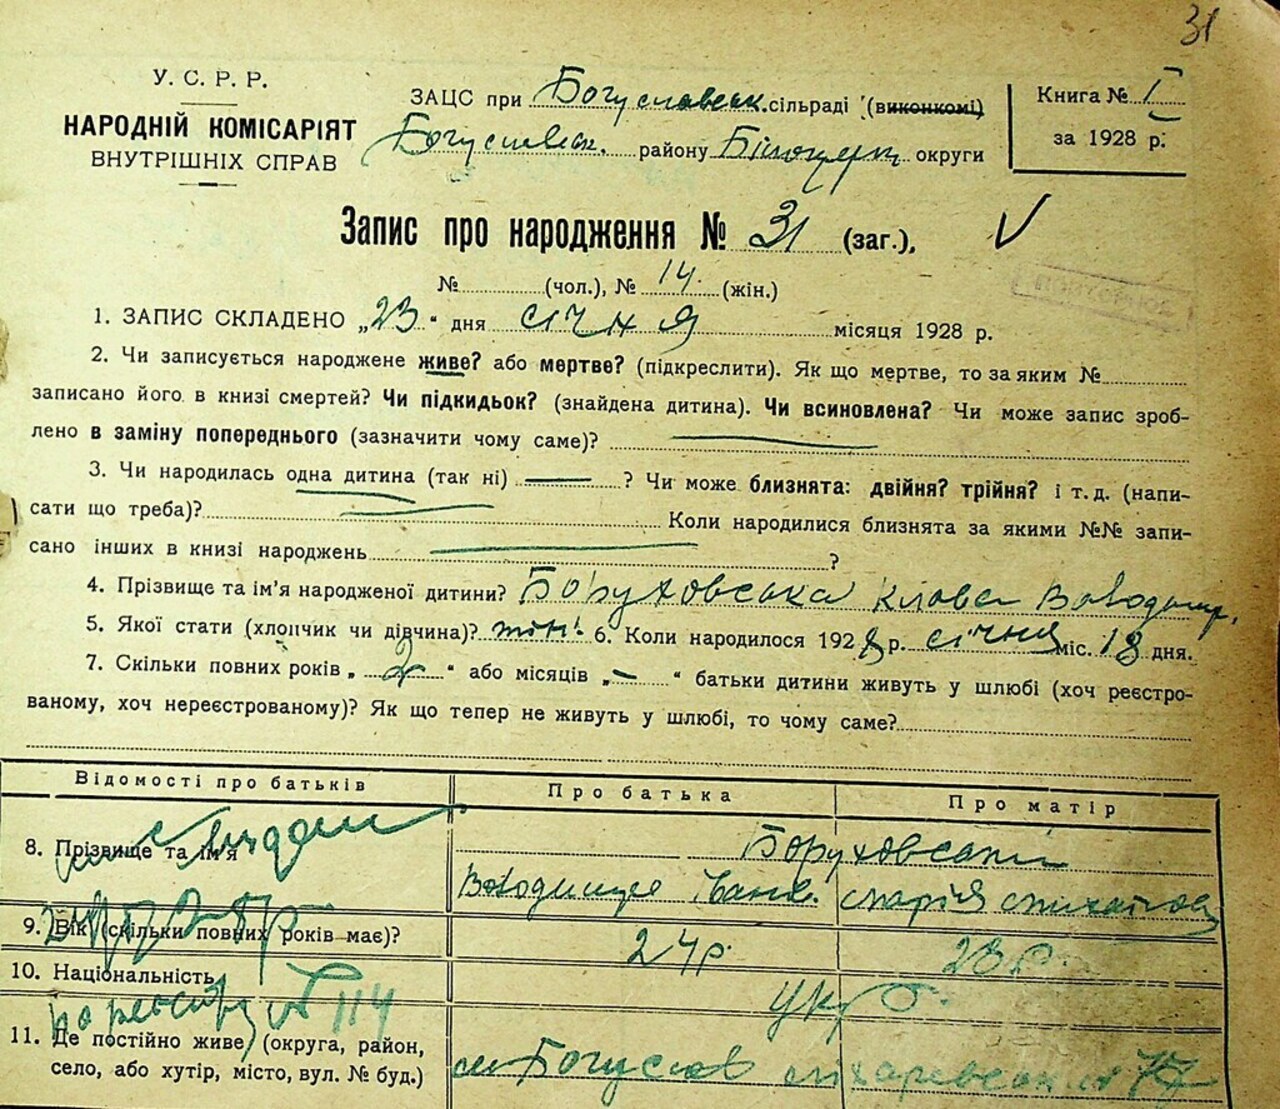 31
У. С. Р. Р.
НАРОДНІЙ КОМІСАРІЯТ
ВНУТРІШНІХ СПРАВ
ЗАЦС при Богуславськ. сільраді (виконкомі)
Богуславськ. району Білоцерк. округи
Книга № I
за 1928 р.
Запис про народження № 31 (заг.),
№ (чол.), № 14. (жін.)
1. ЗАПИС СКЛАДЕНО „23“ дня січня місяця 1928 р.
2. Чи записується народжене живе? або мертве? (підкреслити). Як що мертве, то за яким №
записано його в книзі смертей? Чи підкидьок? (знайдена дитина). Чи всиновлена? Чи може запис зроб-
лено в заміну попереднього (зазначити чому саме)?
3. Чи народилась одна дитина (так ні) ? Чи може близнята: двійня? трійня? і т. д. (напи-
сати що треба)? Коли народилися близнята за якими №№ запи-
сано інших в книзі народжень ?
4. Прізвище та ім'я народженої дитини? Боруховська Клава Володимир.
5. Якої стати (хлопчик чи дівчина)? жін. 6. Коли народилося 1928 р. січня міс. 18 дня.
7. Скільки повних років „2“ або місяців „—“ батьки дитини живуть у шлюбі (хоч реєстро-
ваному, хоч нереєстрованому)? Як що тепер не живуть у шлюбі, то чому саме?
Відомості про батьків Про батька Про матір
8. Прізвище та ім'я Боруховські
Володимир Іванов. Марія Михайлов
9. Вік (скільки повних років має)? 24 р. 28 р.
10. Національність укр
по реєстру № 114
11. Де постійно живе (округа, район,
село, або хутір, місто, вул. № буд.) м Богуслав